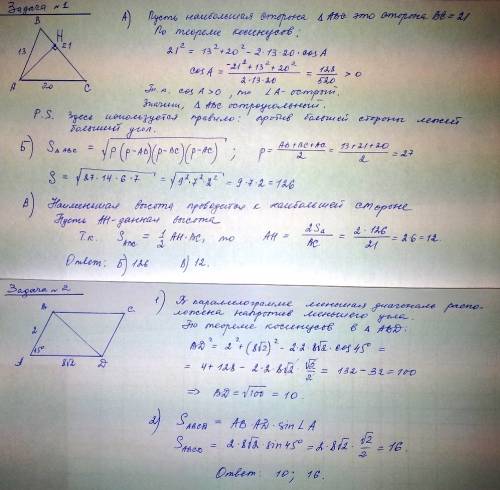 Задача №1
B
H
13
21
A
20
C
А) Пусть наибольшая сторона Δ ABC это сторона BC = 21
По теореме косинусов:
21² = 13² + 20² - 2·13·20·cosA
cosA = (-21² + 13² + 20²) / (2·13·20) = 128 / 520 > 0
Т.к. cosA > 0, то ∠A - острый.
Значит, ΔABC остроугольный.
P.S. Здесь используется правило: против большей стороны лежит
больший угол.
Б) SΔABC = √(p(p-AB)(p-BC)(p-AC)) ; p = (AB+BC+AC) / 2 = (13+21+20) / 2 = 27
S = √(27·14·6·7) = √(9²·7²·2²) = 9·7·2 = 126
В) Наименьшая высота проводится к наибольшей стороне
Пусть AH - данная высота
Т.к. SABC = 1/2 AH·BC, то AH = 2SΔ / BC = 2·126 / 21 = 2·6 = 12.
Ответ: Б) 126 В) 12.
Задача №2
B
C
2
A
45°
8√2
D
1) В параллелограмме меньшая диагональ распо-
ложена напротив меньшего угла.
По теореме косинусов в Δ ABD:
BD² = 2² + (8√2)² - 2·2·8√2·cos45° =
= 4 + 128 - 2·2·8√2·√2/2 = 132 - 32 = 100
⇒ BD = √100 = 10.
2) SABCD = AB·AD·sin∠A
SABCD = 2·8√2·sin45° = 2·8√2·√2/2 = 16.
Ответ: 10; 16.